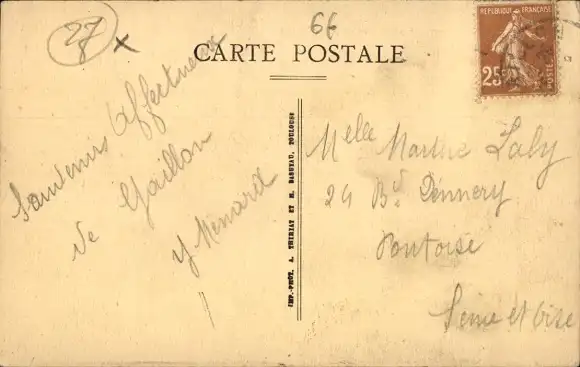 27
66
CARTE POSTALE
REPUBLIQUE FRANÇAISE
25
POSTES
Souvenirs Affectueux
de Gaillon
Y Menard
IMP.-PHOT. A. THIRIAT ET M. BASUYAU, TOULOUSE
Melle Marthe Laly
24 Bd Dennery
Pontoise
Seine et Oise